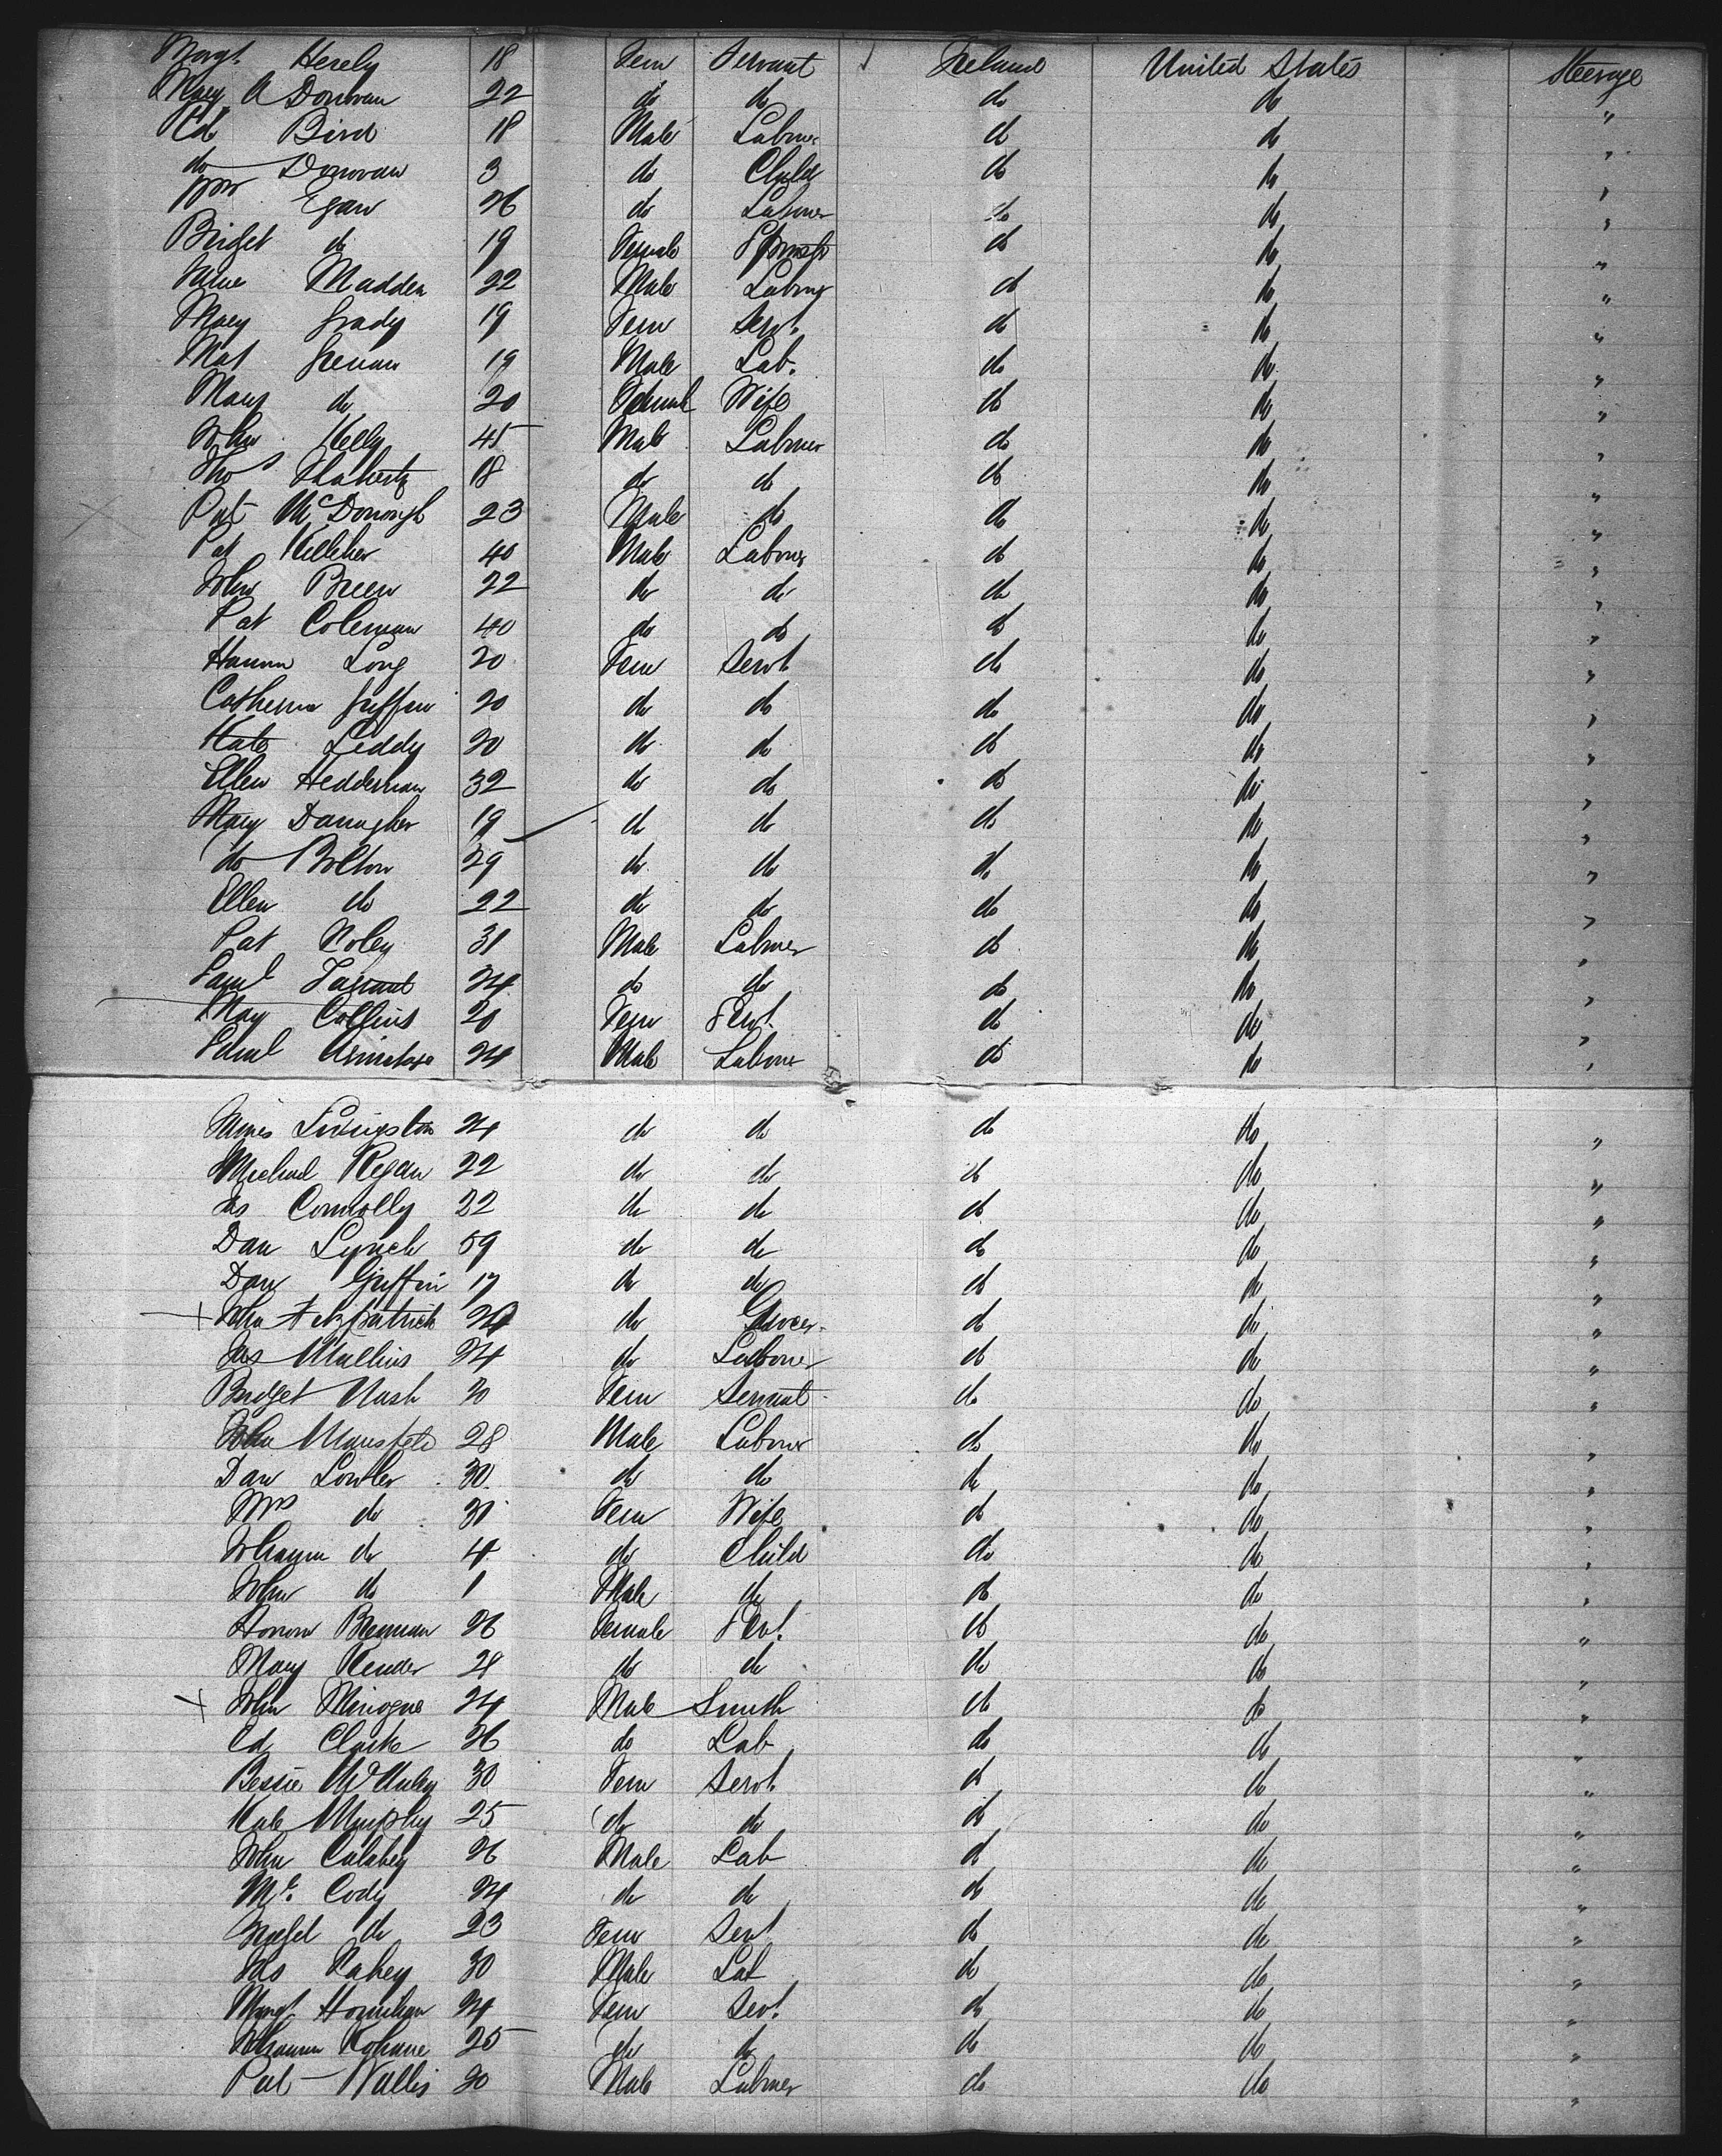 Margt Herely 18 Fem Servant Ireland United States Steerage
Mary A Donovan 22 do do do do "
Ed Bird 18 Male Labour do do "
do Donovan 3 do Child do do "
Wm Egan 26 do Labourer do do "
Bridget do 19 Female Spinstr do do "
Madden 22 Male Labour do do "
Mary Grady 19 Fem Servt. do do "
Mat 19 Male Lab. do do "
Mary do 20 Female Wife do do "
John Kelly 45 Male Labourer do do "
Thos Flaherty 18 do do do do "
Pat McDonough 23 Male do do do "
Pat Kelleher 40 Male Labourer do do "
John Breen 22 do do do do "
Pat Coleman 40 do do do do "
Hanna Long 20 Fem Servt do do "
Catherine Griffin 20 do do do do "
Kate Leddy 20 do do do do "
Ellen Hedderman 32 do do do do "
Mary Danagher 19 do do do do "
do Bolton 29 do do do do "
Ellen do 22 do do do do "
Pat Foley 31 Male Labourer do do "
Saml 24 do do do do "
May Collins 20 Fem Servt. do do "
Saml 24 Male Labour do do "
James Livingston 24 do do do do "
Michael Regan 22 do do do do "
Jas Connolly 22 do do do do "
Dan Lynch 59 do do do do "
Dan Griffin 17 do do do do "
John Fitzpatrick 24 do Grocer do do "
Jas Mullins 24 do Labourer do do "
Bridget Nash 20 Fem Servant do do "
John Mansfield 28 Male Labour do do "
Dan Lowler 30 do do do do "
Mrs do 31 Fem Wife do do "
Johanna do 4 do Child do do "
John do 1 Male do do do "
Honora Brennan 26 Female Servt. do do "
Mary 28 do do do do "
John Minogue 24 Male Smith do do "
Ed Clarke 26 do Lab do do "
Bessie McAuley 30 Fem Servt. do do "
Kate Murphy 25 do do do do "
John Calahey 26 Male Lab do do "
Ml. Cody 24 do do do do "
do 23 Fem Servt do do "
Jas Fahey 30 Male Lab do do "
Margt Hourihan 24 Fem Servt. do do "
Johanna Kohane 25 do do do do "
Pat Wallis 30 Male Labourer do do "